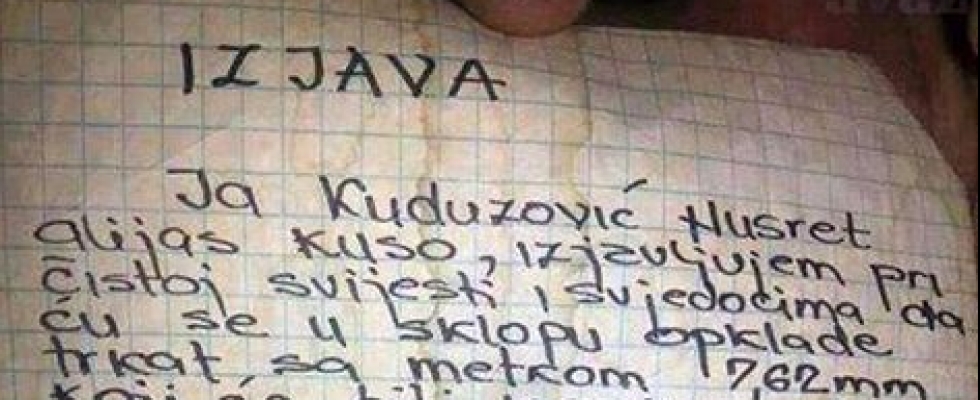 IZJAVA
Ja Kuduzović Husret
alijas Kuso, izjavljujem pri
čistoj svijesti i svjedocima da
ću se u sklopu opklade
trkat sa metkom 7,62mm